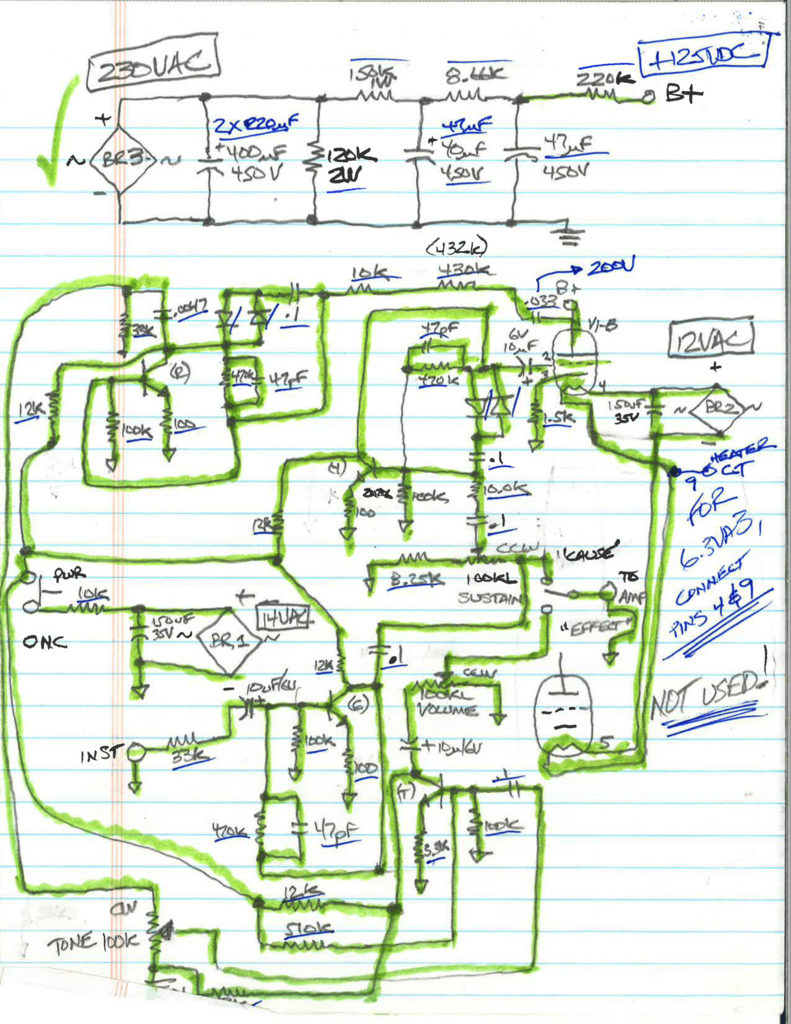 230VAC
+125VDC
150K
1W
8.66K
220K
B+
+
~ BR3 ~
-
2X220µF
+400µF
450V
120K
2W
47µF
+40µF
450V
47µF
450V
(432K)
10K
430K
200V
.033
B+
V1-B
39K
.0047
.1
470K
47pF
12K
(R)
100K
100
47pF
470K
6V
10µF
+
2
3
4
1.5K
12VAC
+
150µF
35V
~ BR2 ~
-
HEATER
CT
9
FOR
6.3VAC,
CONNECT
PINS 4&9
(4)
.1
10.0K
100K
100
.1
12K
8.25K
CCW
100KL
SUSTAIN
"CAUSE"
TO
AMP
"EFFECT"
PWR
10K
ONC
150µF
35V
+
14VAC
~ BR1
-
12K
.1
10µF/6V
+
(G)
CCW
100KL
VOLUME
NOT USED!
5
INST
33K
100K
100
+10µ/6V
(T)
.1
470K
47pF
3.3K
100K
12K
510K
CW
TONE 100K